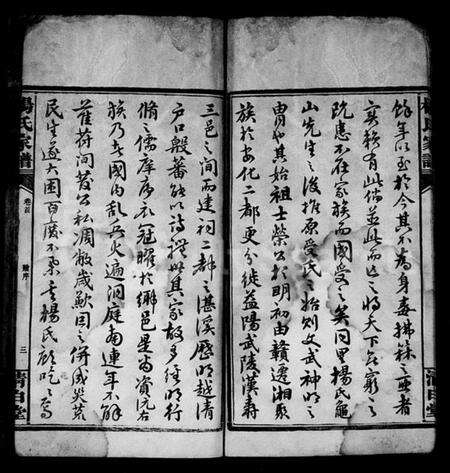 餘年以至於今其不為身毒拂菻之
宗賴有此耳並此而亡之將天下無窮之
既慮不在家族而國受之矣同里楊氏龜
山先生之後推原受氏之始則文武神明之
冑也其始祖士榮公於明初由贛遷湘聚
族於安化二都更分徙益陽武陵漢壽
三邑之間而建祠二都之湛溪歷明越清
戶口般蕃能以詩禮世其家故多經明行
脩之儒庠序衣冠曜於鄉邑是尚資沅右
族乃者國內亂兵火遍洞庭南連年不解
萑苻間發公私凋敝歲歉因之併成災荒
民生遂大困百廢不舉吾楊氏顧
楊氏家譜
卷首
序
三
清白堂
楊氏家譜
清白堂